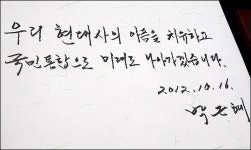 우리 현대사의 아픔을 치유하고
국민통합으로 미래로 나아가겠습니다.
2012. 10. 16.
박근혜